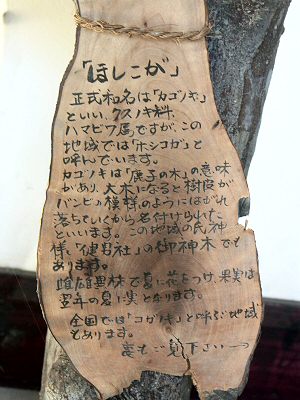 「ほしこが」
正式和名は「カゴノキ」
といい、クスノキ科、
ハマビワ属ですが、この
地域では「ホシコガ」と
呼んでいます。
カゴノキは「鹿子の木」の意味
があり、大木になると樹皮が
バンビの模様のようにはがれ
落ちていくから名付けられた
といいます。この地域の氏神
様「健男社」の御神木でも
あります。
雌雄異株で夏に花をつけ、果実は
翌年の夏に実となります。
全国では「コガノキ」と呼ぶ地域
もあります。
裏もご覧下さいーっ